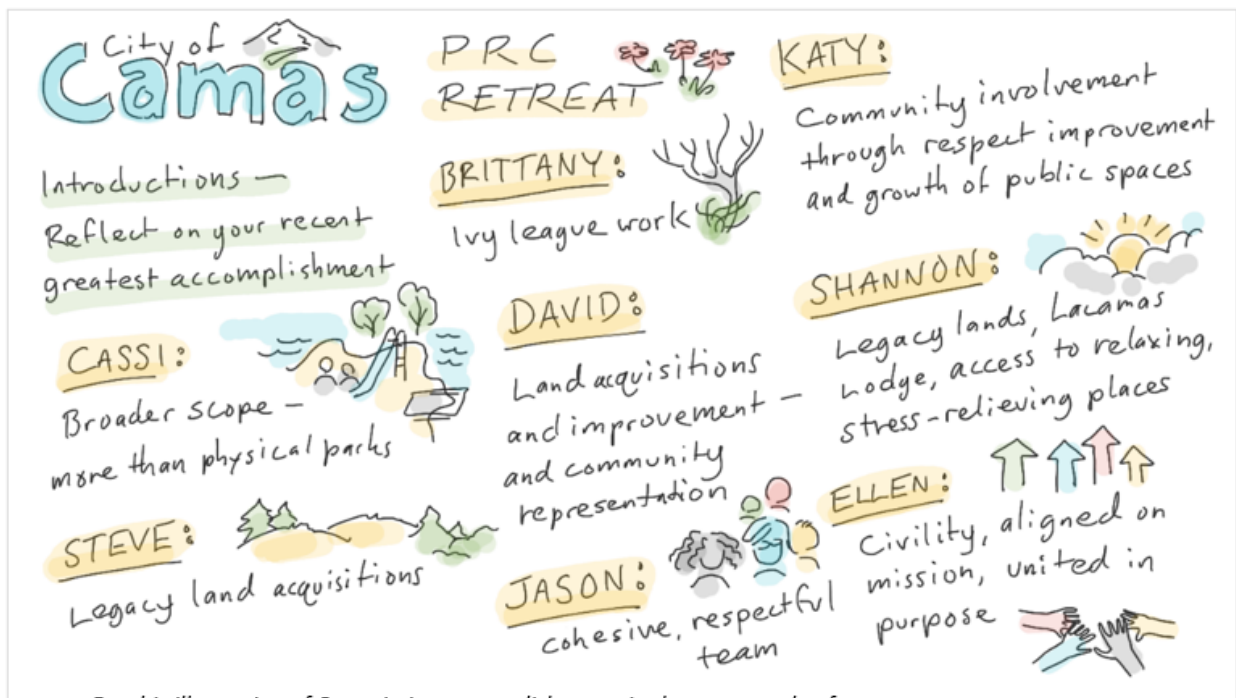 City of
Camas
Introductions –
Reflect on your recent
greatest accomplishment
CASSI:
Broader scope –
more than physical parks
STEVE:
Legacy land acquisitions
PRC
RETREAT
BRITTANY:
Ivy league work
DAVID:
Land acquisitions
and improvement –
and community
representation
JASON:
cohesive, respectful
team
KATY:
Community involvement
through respect improvement
and growth of public spaces
SHANNON:
Legacy lands, Lacamas
Lodge, access to relaxing,
stress-relieving places
ELLEN:
Civility, aligned on
mission, united in
purpose